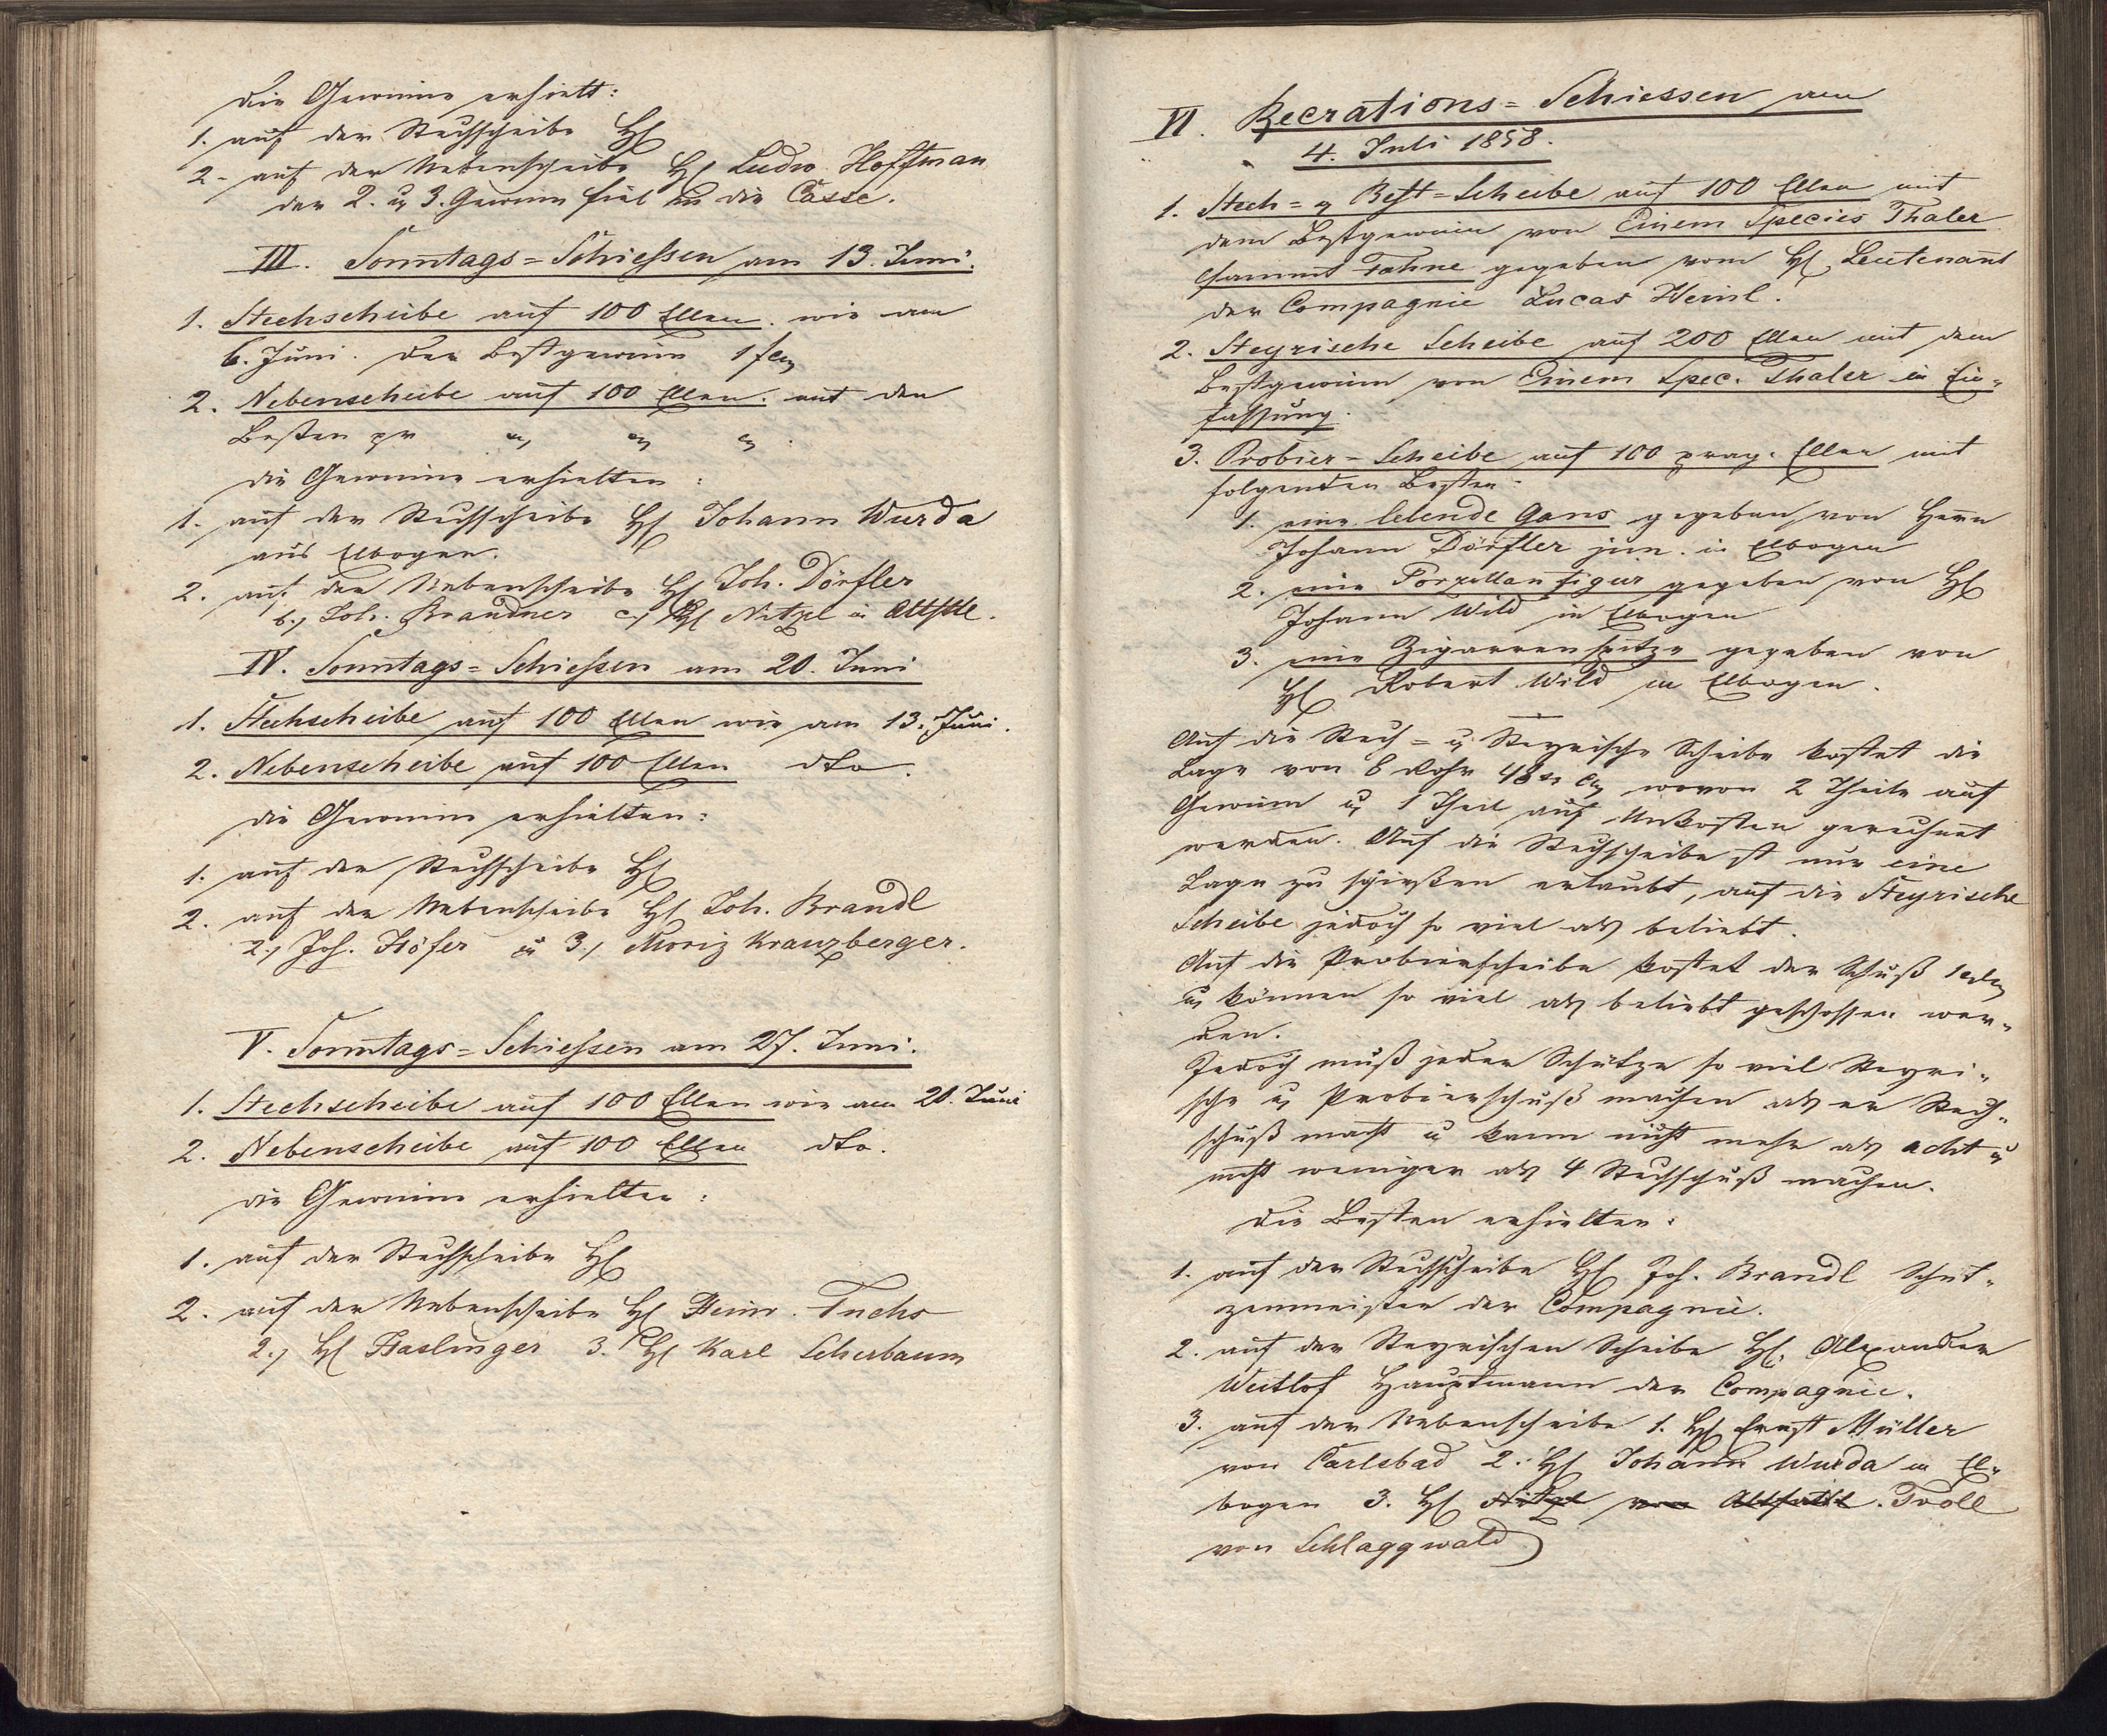 Die Gewinne erhielt:
1. auf der Stechscheibe H
2. auf der Nebenscheibe H Ludw. Hoffman
der 2. u 3. Gewinn fiel in die Casse.
III. Sonntags=Schießen am 13. Juni.
1. Stechscheibe auf 100 Ellen. wie am
6. Juni. der Bestgewinn 1 f
2. Nebenscheibe auf 100 Ellen. mit den
Besten pr " " "
die Gewinne erhielten:
1. auf der Stechscheibe H Johann Wurda
aus Elbogen.
2. auf der Nebenscheibe H Joh. Dörfler
b., Joh. Brandner c., H Nitzl in Altsttl.
IV. Sonntags=Schießen am 20. Juni
1. Stechscheibe auf 100 Ellen wie am 13. Juni.
2. Nebenscheibe auf 100 Ellen dto.
die Gewinne erhielten:
1. auf der Stechscheibe H
2. auf der Nebenscheibe H Joh. Brandl
2., Jos. Höfer u 3., Moriz Kranzberger.
V. Sonntags=Schießen am 27. Juni.
1. Stechscheibe auf 100 Ellen wie am 20. Juni
2. Nebenscheibe auf 100 Ellen dto.
die Gewinne erhielten:
1. auf der Stechscheibe H
2. auf der Nebenscheibe H Heinr. Fuchs
2., H Haslinger 3. H Karl Scherbaum
VI. Recrations=Schiessen am
4. Juli 1858.
1. Stech= u Best=Scheibe auf 100 Ellen mit
dem Bestgewinn von Einem Species Thaler
sammt Fahne gegeben vom H. Leutenant
der Compagnie Lucas Heinl.
2. Steyrische Scheibe auf 200 Ellen mit dem
Bestgewinn von Einem Spec. Thaler in Ein=
fassung.
3. Probier=Scheibe auf 100 prag. Ellen mit
folgenden Besten:
1. eine lebende Gans gegeben von Herrn
Johann Dörfler jun. in Elbogen
2. eine Porzellanfigur gegeben von H
Johann Wild in Elbogen
3. eine Zigarrenspitze gegeben von
H Robert Wild in Elbogen.
Auf die Stech= u Steyrische Scheibe kostet die
Lage von 8 Rohr 48 wovon 2 Theile auf
Gewinn u 1 Theil auf Unkosten gerechnet
werden. Auf die Stechscheibe ist nur eine
Lage zu schießen erlaubt, auf die Steyrische
Scheibe jedoch so viel als beliebt.
Auf die Probierscheibe kostet der Schuß 1
u können so viel als beliebt geschossen wer=
den.
Jedoch muß jeder Schütze so viel Steyri=
sche u Probierschuß machen als er Stech=
schuß macht u kann nicht mehr als acht u
nicht weniger als 4 Stechschuß machen.
Die Besten erhielten:
1. auf der Stechscheibe H Joh. Brandl Schüt=
zenmeister der Compagnie.
2. auf der Steyrischen Scheibe H. Alexander
Weitlof Hauptmann der Compagnie.
3. auf der Nebenscheibe 1. H Ernst Müller
von Carlsbad 2. H Johann Wurda in El=
bogen 3. H Nitzl von Altsattl. Troll
von Schlaggwald